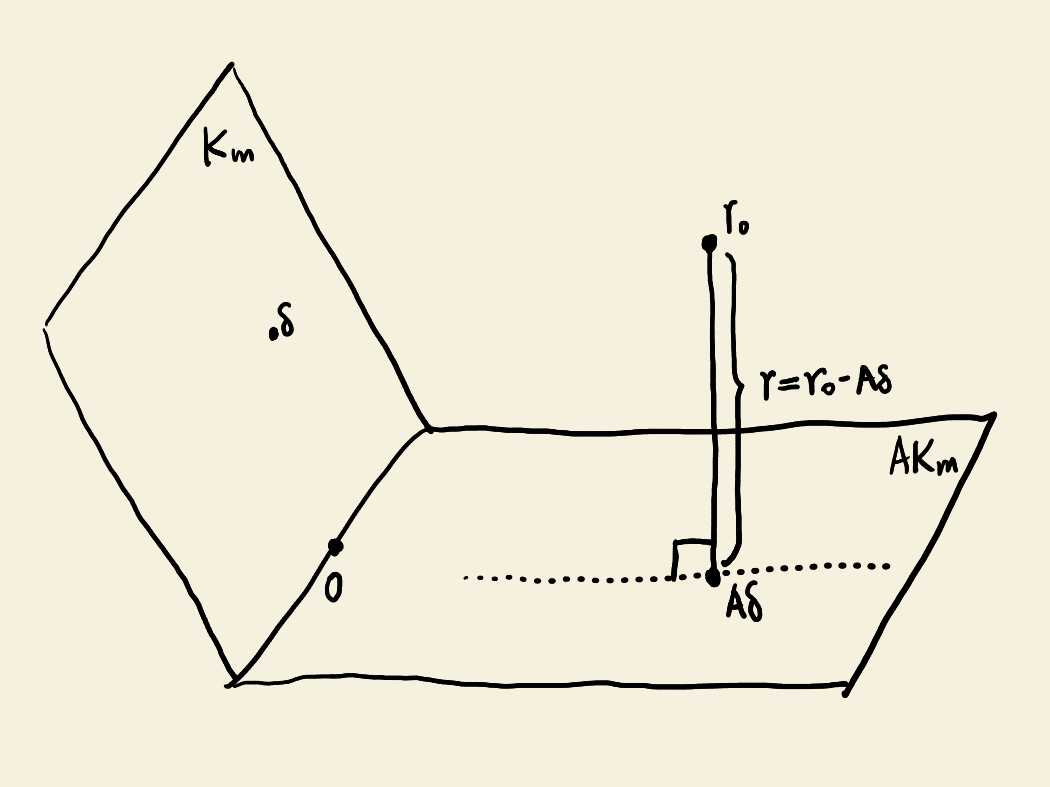 Km
r₀
.δ
r=r₀-Aδ
AKm
0
Aδ